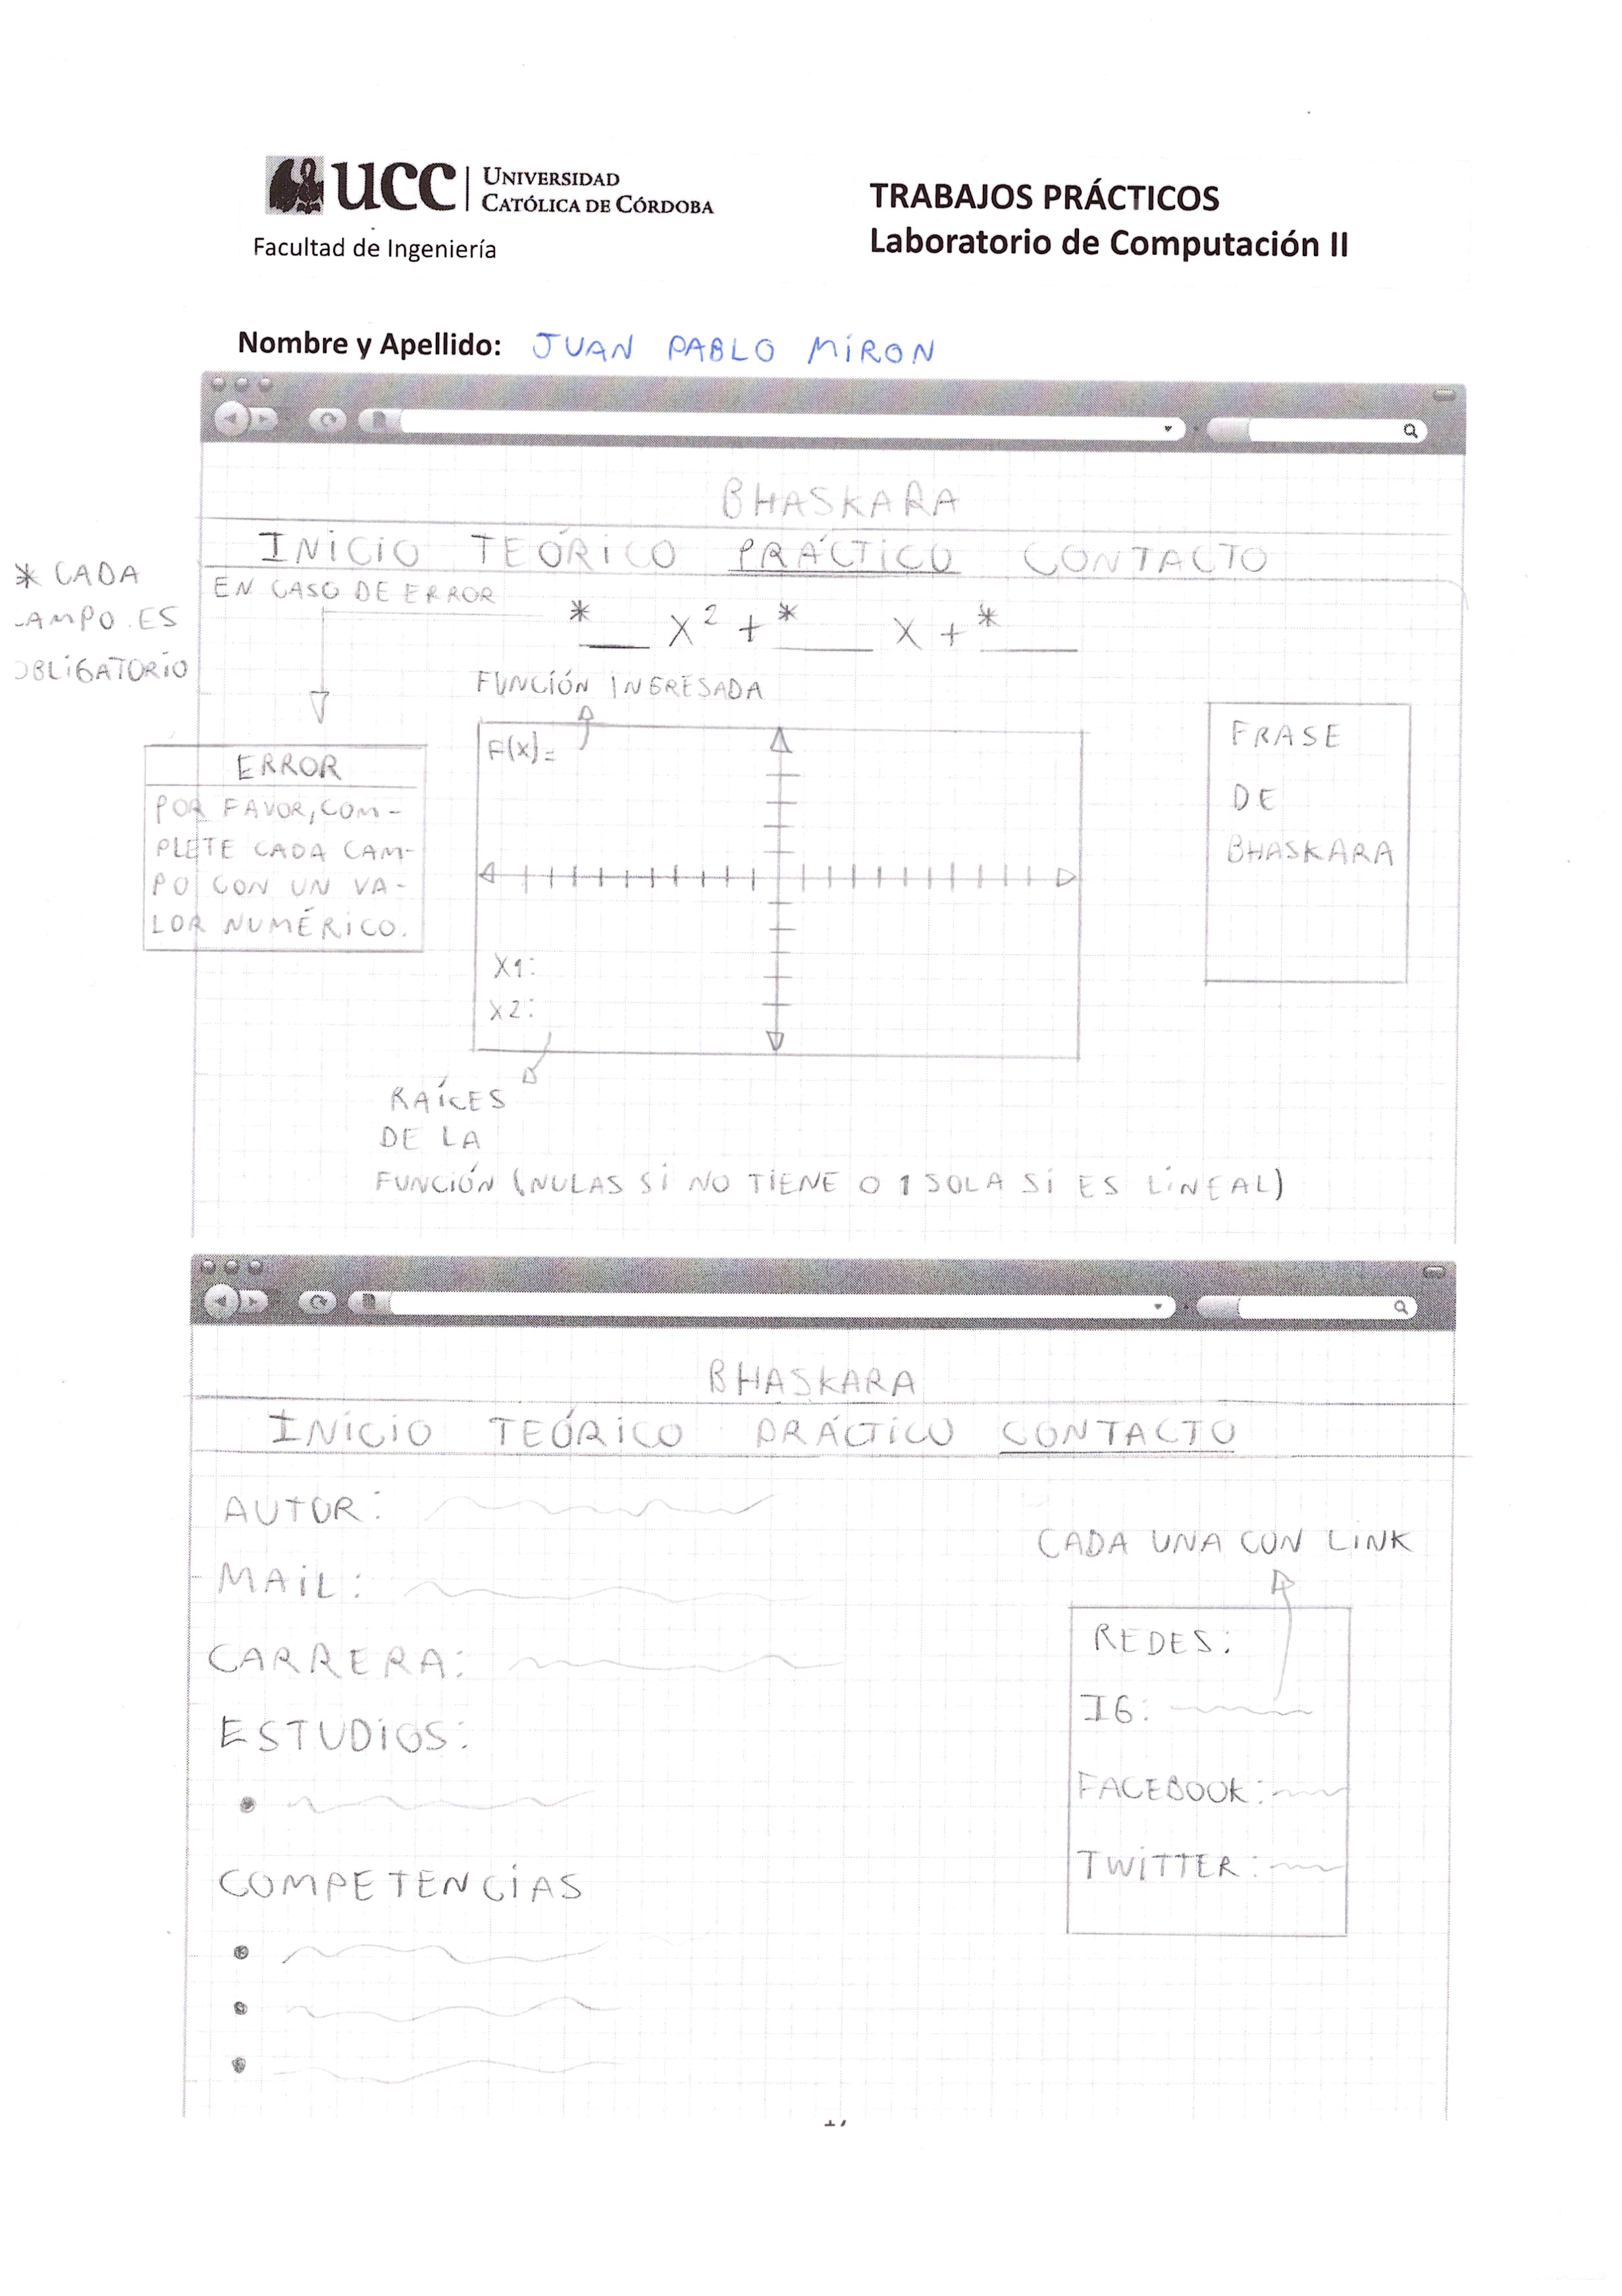 UCC UNIVERSIDAD
CATÓLICA DE CÓRDOBA
Facultad de Ingeniería
TRABAJOS PRÁCTICOS
Laboratorio de Computación II
Nombre y Apellido: JUAN PABLO MIRON
BHASKARA
INICIO TEÓRICO PRÁCTICO CONTACTO
* CADA
AMPO ES
OBLIGATORIO
EN CASO DE ERROR
*___ X² + *___ X + *___
FUNCIÓN INGRESADA
F(x)=
ERROR
POR FAVOR, COM-
PLETE CADA CAM-
PO CON UN VA-
LOR NUMÉRICO.
FRASE
DE
BHASKARA
X1:
X2:
RAÍCES
DE LA
FUNCIÓN (NULAS SI NO TIENE O 1 SOLA SI ES LINEAL)
BHASKARA
INICIO TEÓRICO PRÁCTICO CONTACTO
AUTOR:
MAIL:
CARRERA:
ESTUDIOS:
COMPETENCIAS
CADA UNA CON LINK
REDES:
IG:
FACEBOOK:
TWITTER: